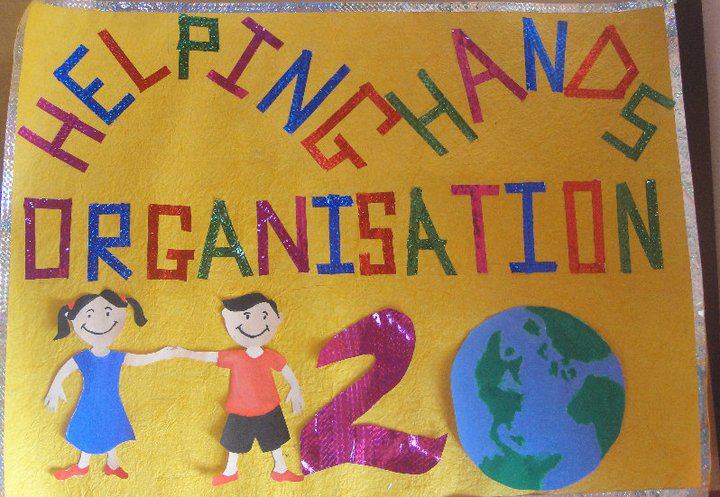 HELPING HANDS
ORGANISATION
2